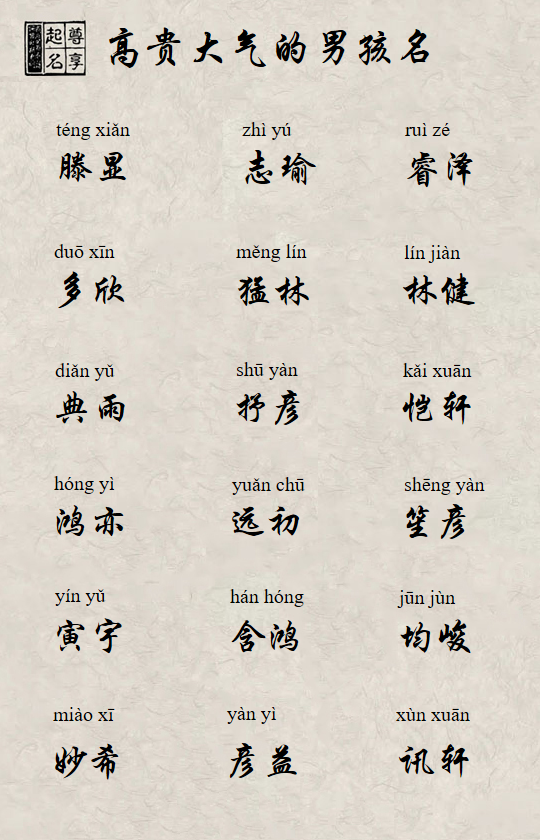 尊享
起名
高贵大气的男孩名
téng xiǎn zhì yú ruì zé
滕显 志瑜 睿泽
duō xīn měng lín lín jiàn
多欣 猛林 林健
diǎn yǔ shū yàn kǎi xuān
典雨 抒彦 恺轩
hóng yì yuǎn chū shēng yàn
鸿亦 远初 笙彦
yín yǔ hán hóng jūn jùn
寅宇 含鸿 均峻
miào xī yàn yì xùn xuān
妙希 彦益 讯轩